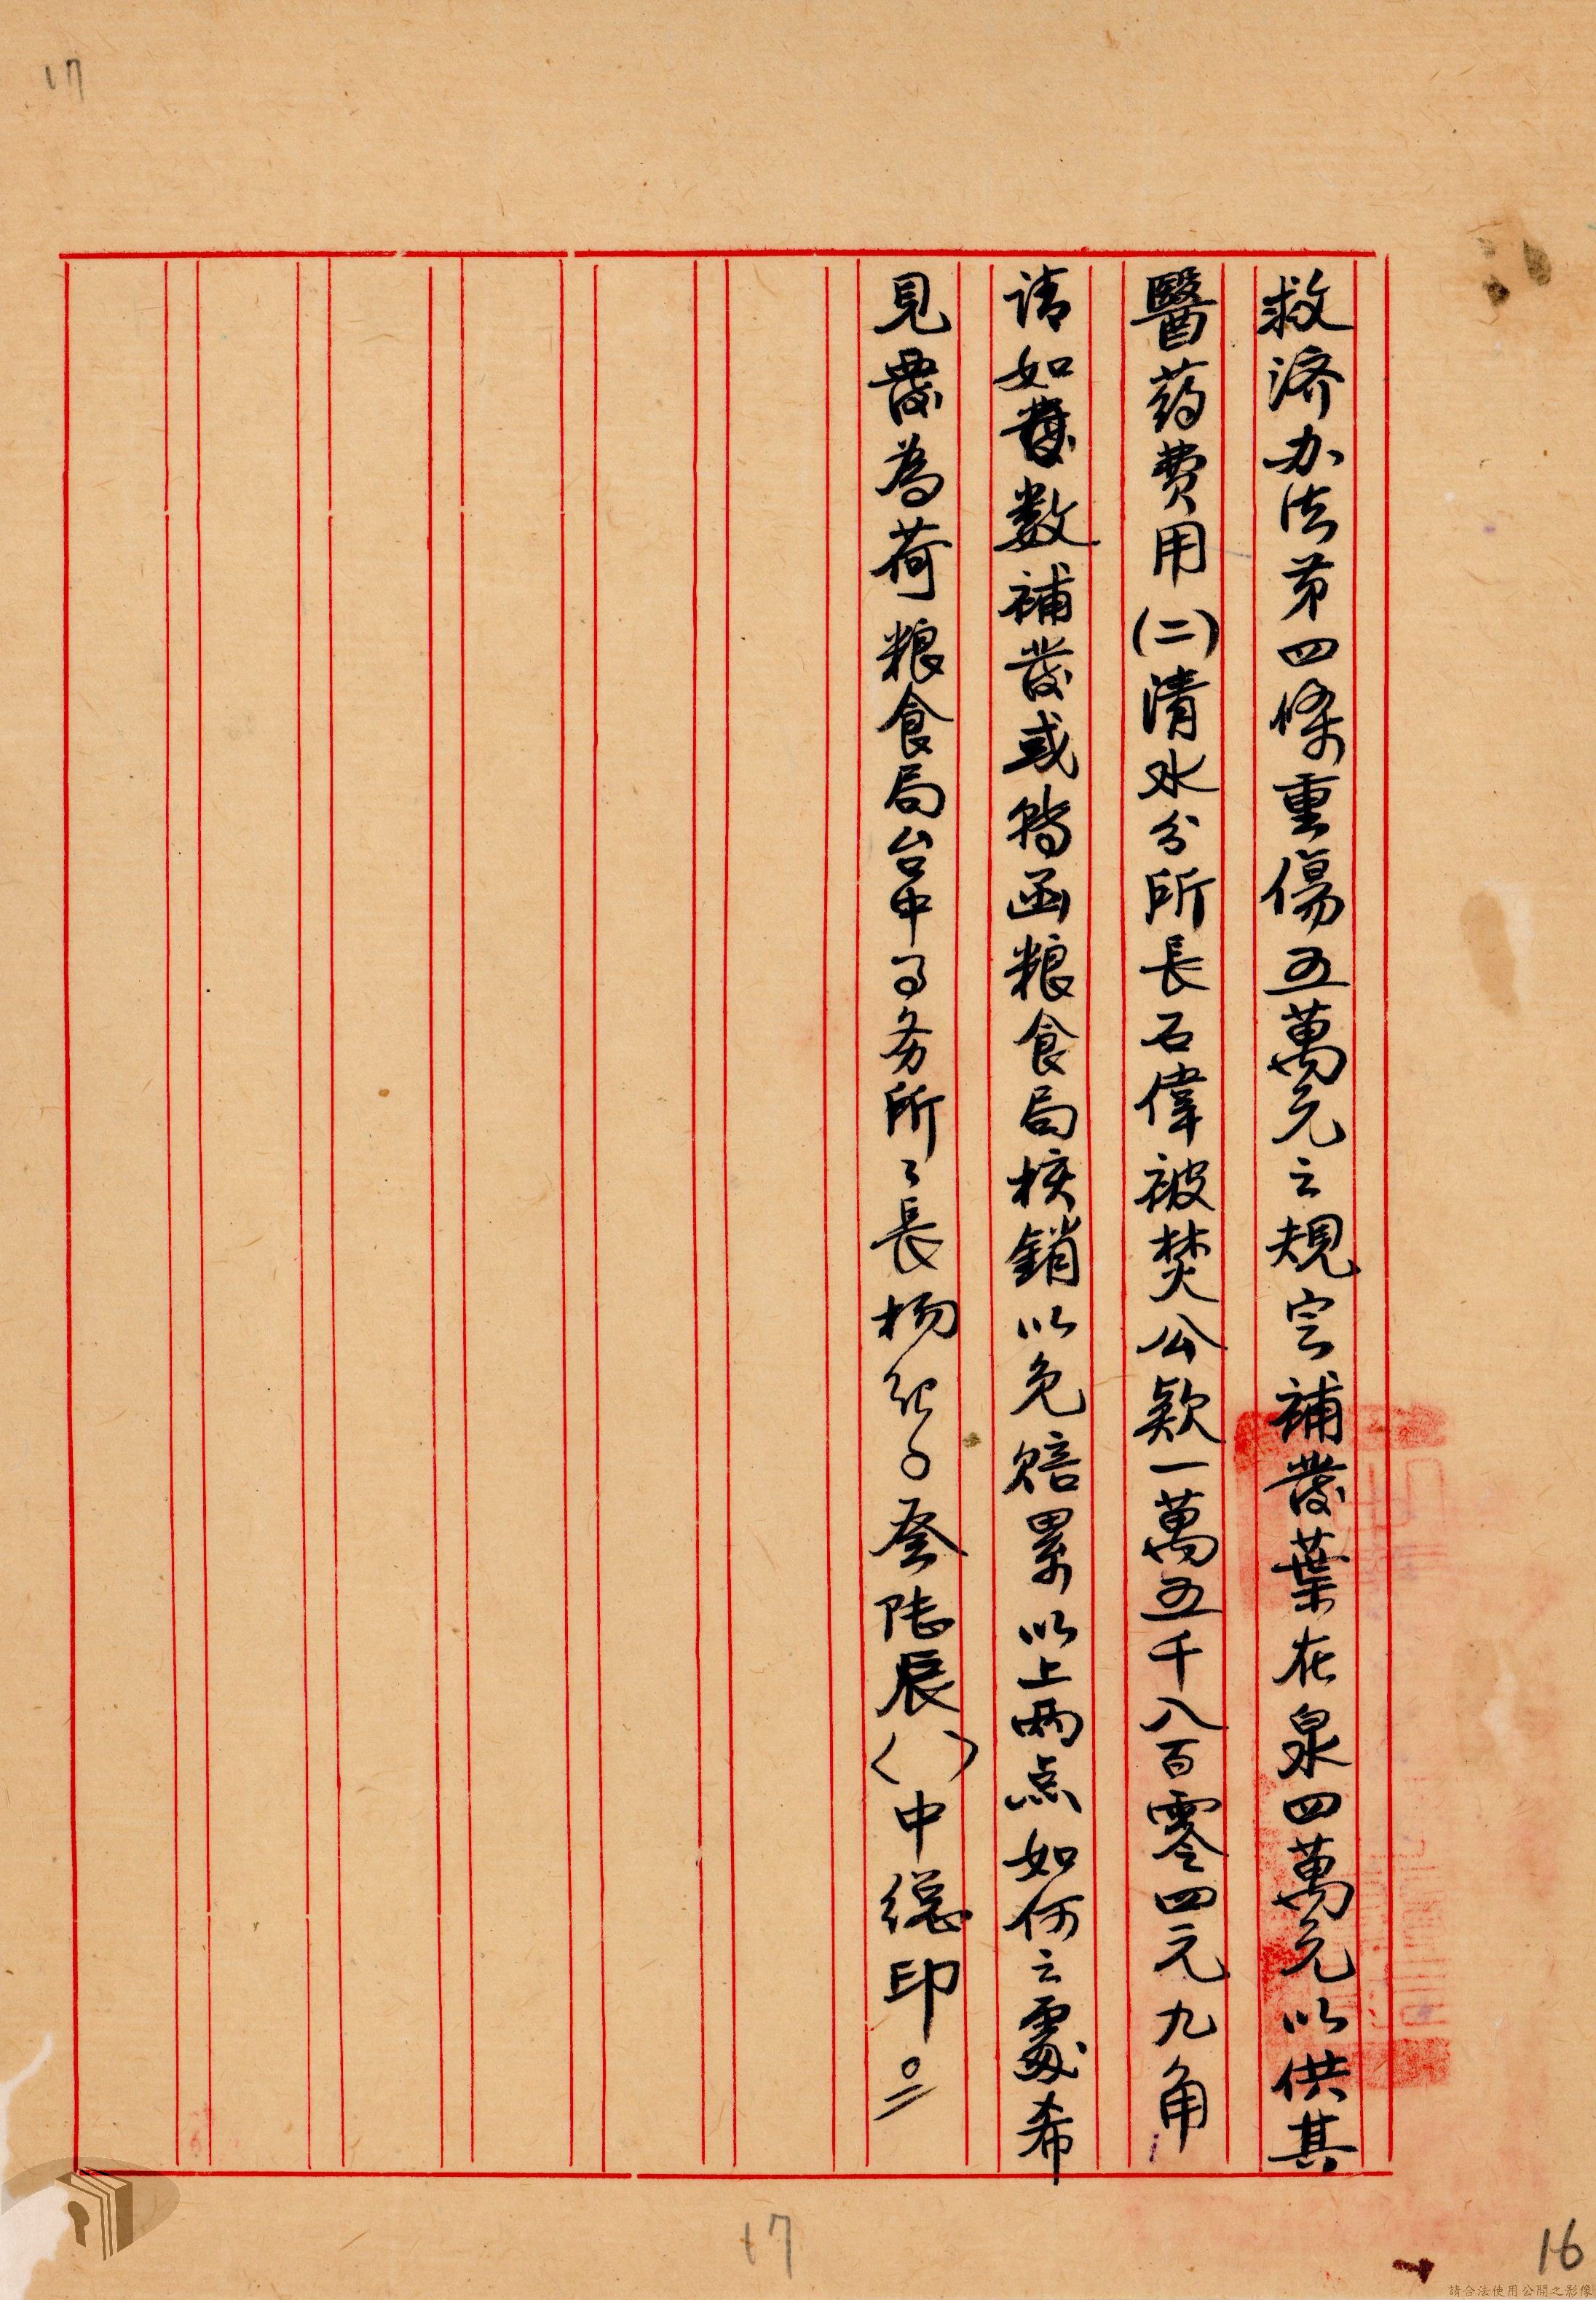 17
救济办法第四條重傷五萬元之規定補發葉在泉四萬元以供其
醫药費用(二)清水分所長石偉被焚公欵一萬五千八百零四元九角
请如數補發或轉函粮食局核銷以免賠累以上两点如何之處希
見發為荷粮食局台中事务所〻長杨叁陆辰()中總印
17
16
請合法使用公開之影像